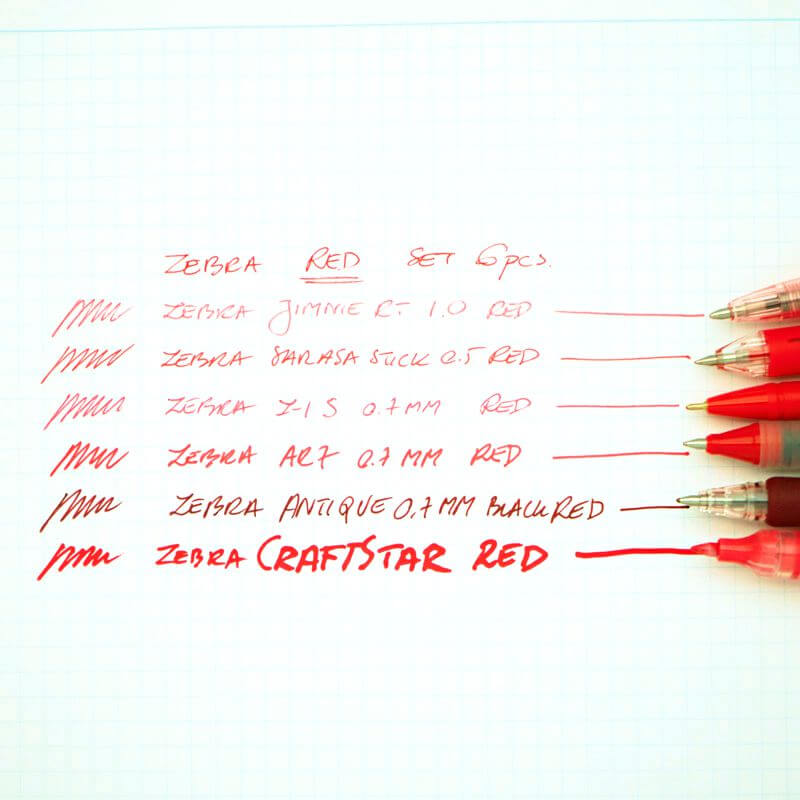 ZEBRA RED SET 6pcs.
ZEBRA JIMNIE RT 1.0 RED
ZEBRA SARASA STICK 0.5 RED
ZEBRA Z-1 S 0.7MM RED
ZEBRA AR7 0.7 MM RED
ZEBRA ANTIQUE 0,7MM BLACKRED
ZEBRA CRAFTSTAR RED